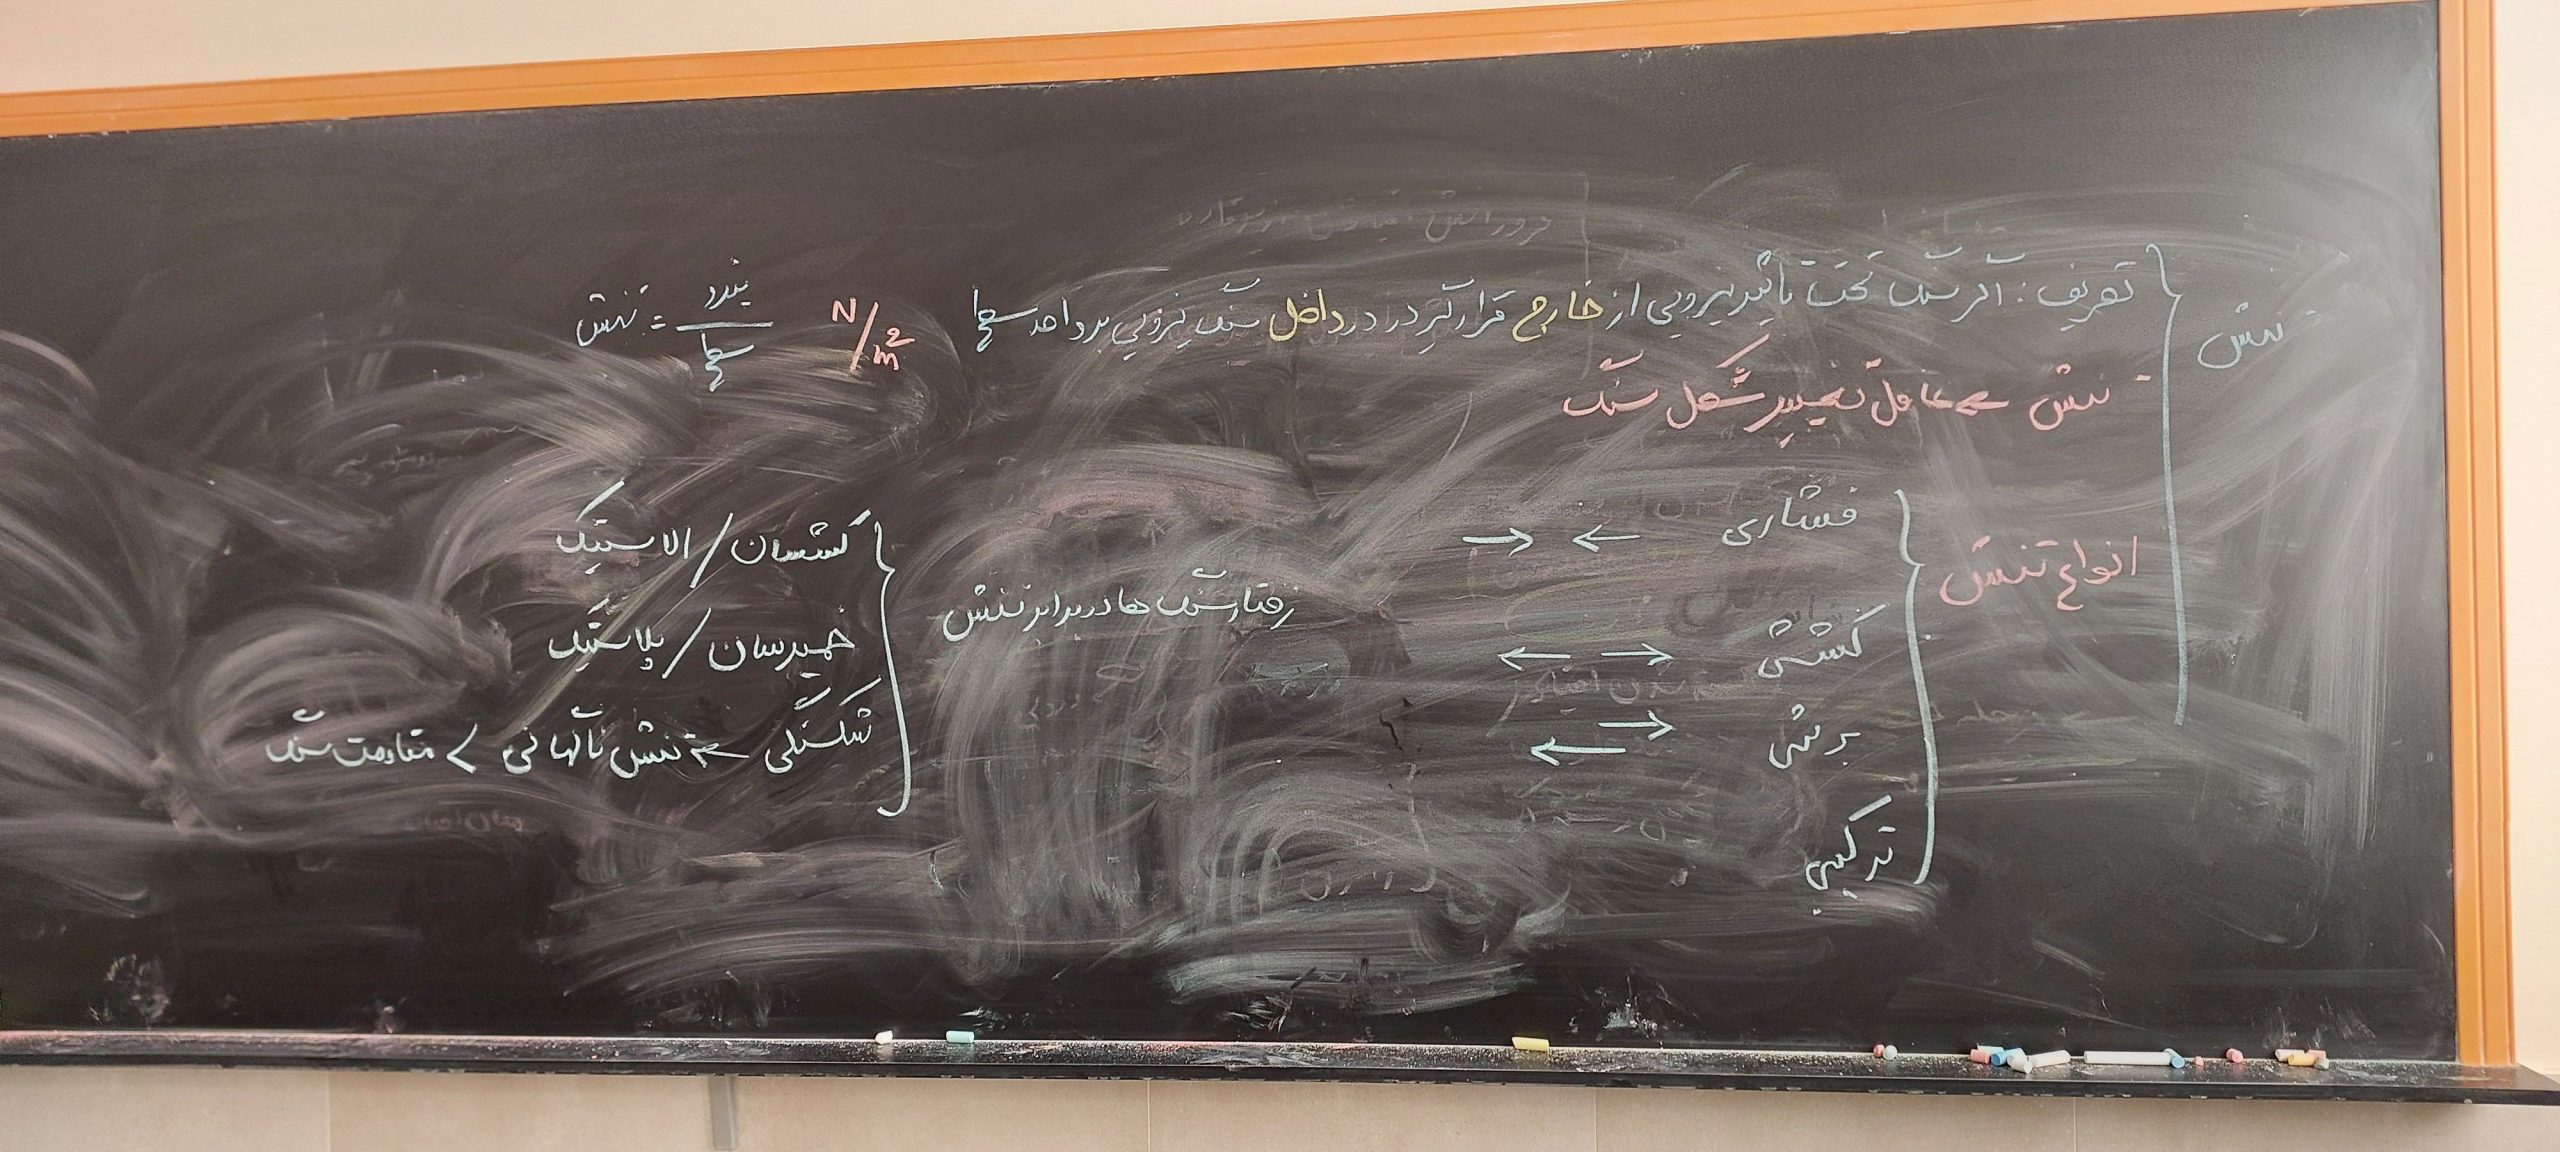 تنش
تعریف: اگر سنگ تحت تأثیر نیرویی از خارج قرار گیرد در داخل سنگ نیرویی بر واحد سطح
N/m²
تنش = نیرو / سطح
- تنش ← عامل تغییر شکل سنگ
انواع تنش
فشاری → ←
کششی ← →
برشی → ←
ترکیبی
رفتار سنگ ها در برابر تنش
کشسان / الاستیک
خمیرسان / پلاستیک
شکستگی ← تنش ناگهانی > مقاومت سنگ